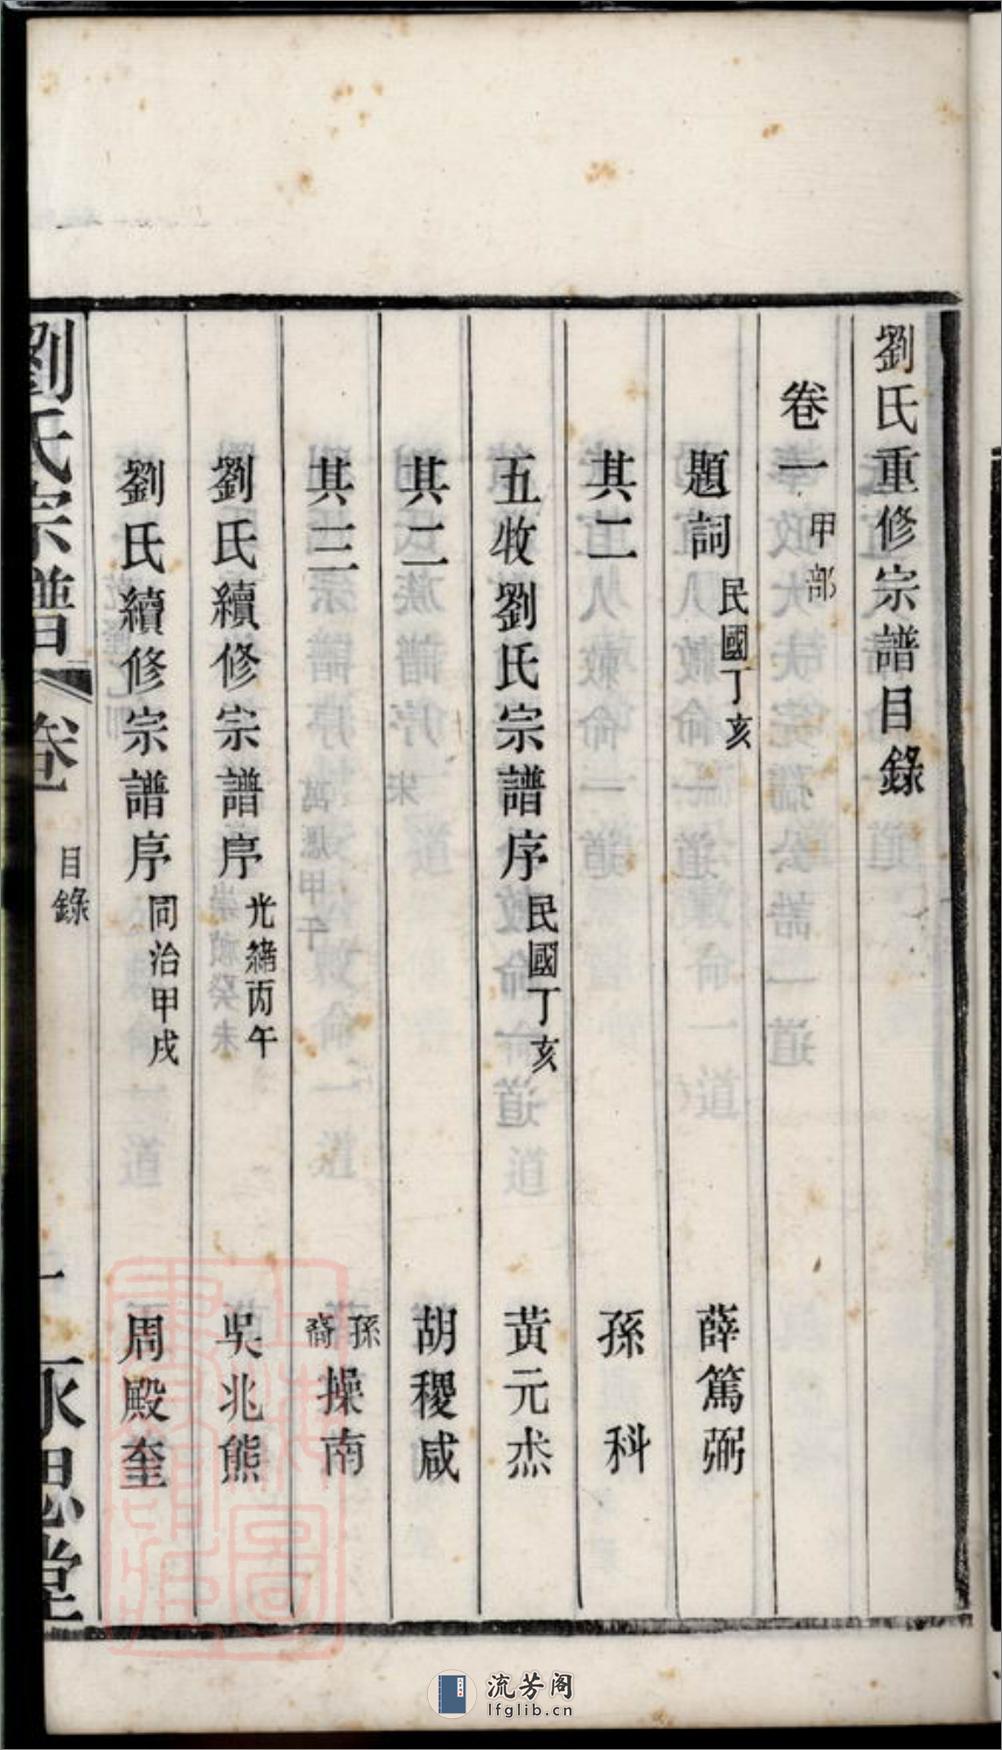 劉氏重修宗譜目錄
卷一 甲部
題詞 民國丁亥 薛篤弼
其二 孫 科
五牧劉氏宗譜序 民國丁亥 黃元杰
其二 胡稷咸
其三 孫裔操南
劉氏續修宗譜序 光緒丙午 吳兆熊
劉氏續修宗譜序 同治甲戌 周殿奎
劉氏宗譜 卷一 目錄 一 永思堂
流芳阁
lfglib.cn